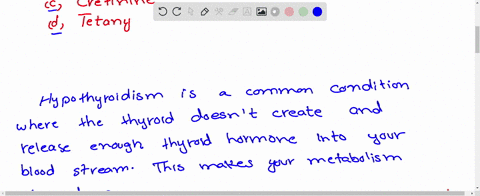 (d, Tetany
Hypothyroidism is a common condition
where the thyroid doesn't create and
release enough thyroid hormone into your
blood stream. This makes your metabolism